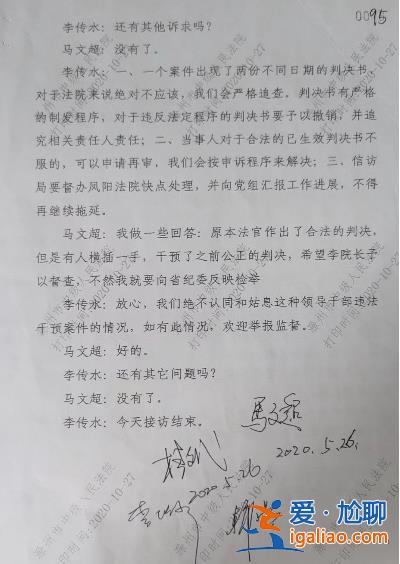 0095
李传水：还有其他诉求吗？
马文超：没有了。
李传水：一、一个案件出现了两份不同日期的判决书，
对于法院来说绝对不应该，我们会严格追查。判决书有严格
的制发程序，对于违反法定程序的判决书要予以撤销，并追
究相关责任人责任；二、当事人对于合法的已生效判决书不
服的，可以申请再审，我们会按申诉程序来解决；三、信访
局要督办凤阳法院快点处理，并向党组汇报工作进展，不得
再继续拖延。
马文超：我做一些回答：原本法官作出了合法的判决，
但是有人横插一手，干预了之前公正的判决，希望李院长予
以督查，不然我就要向省纪委反映检举
李传水：放心，我们绝不认同和姑息这种领导干部违法
干预案件的情况，如有此情况，欢迎举报监督。
马文超：好的。
李传水：还有其它问题吗？
马文超：没有了。
李传水：今天接访结束。
馬文超
2020.5.26.
2020.5.26
滁州市中级人民法院
打印时间:2020-10-27
爱·尬聊